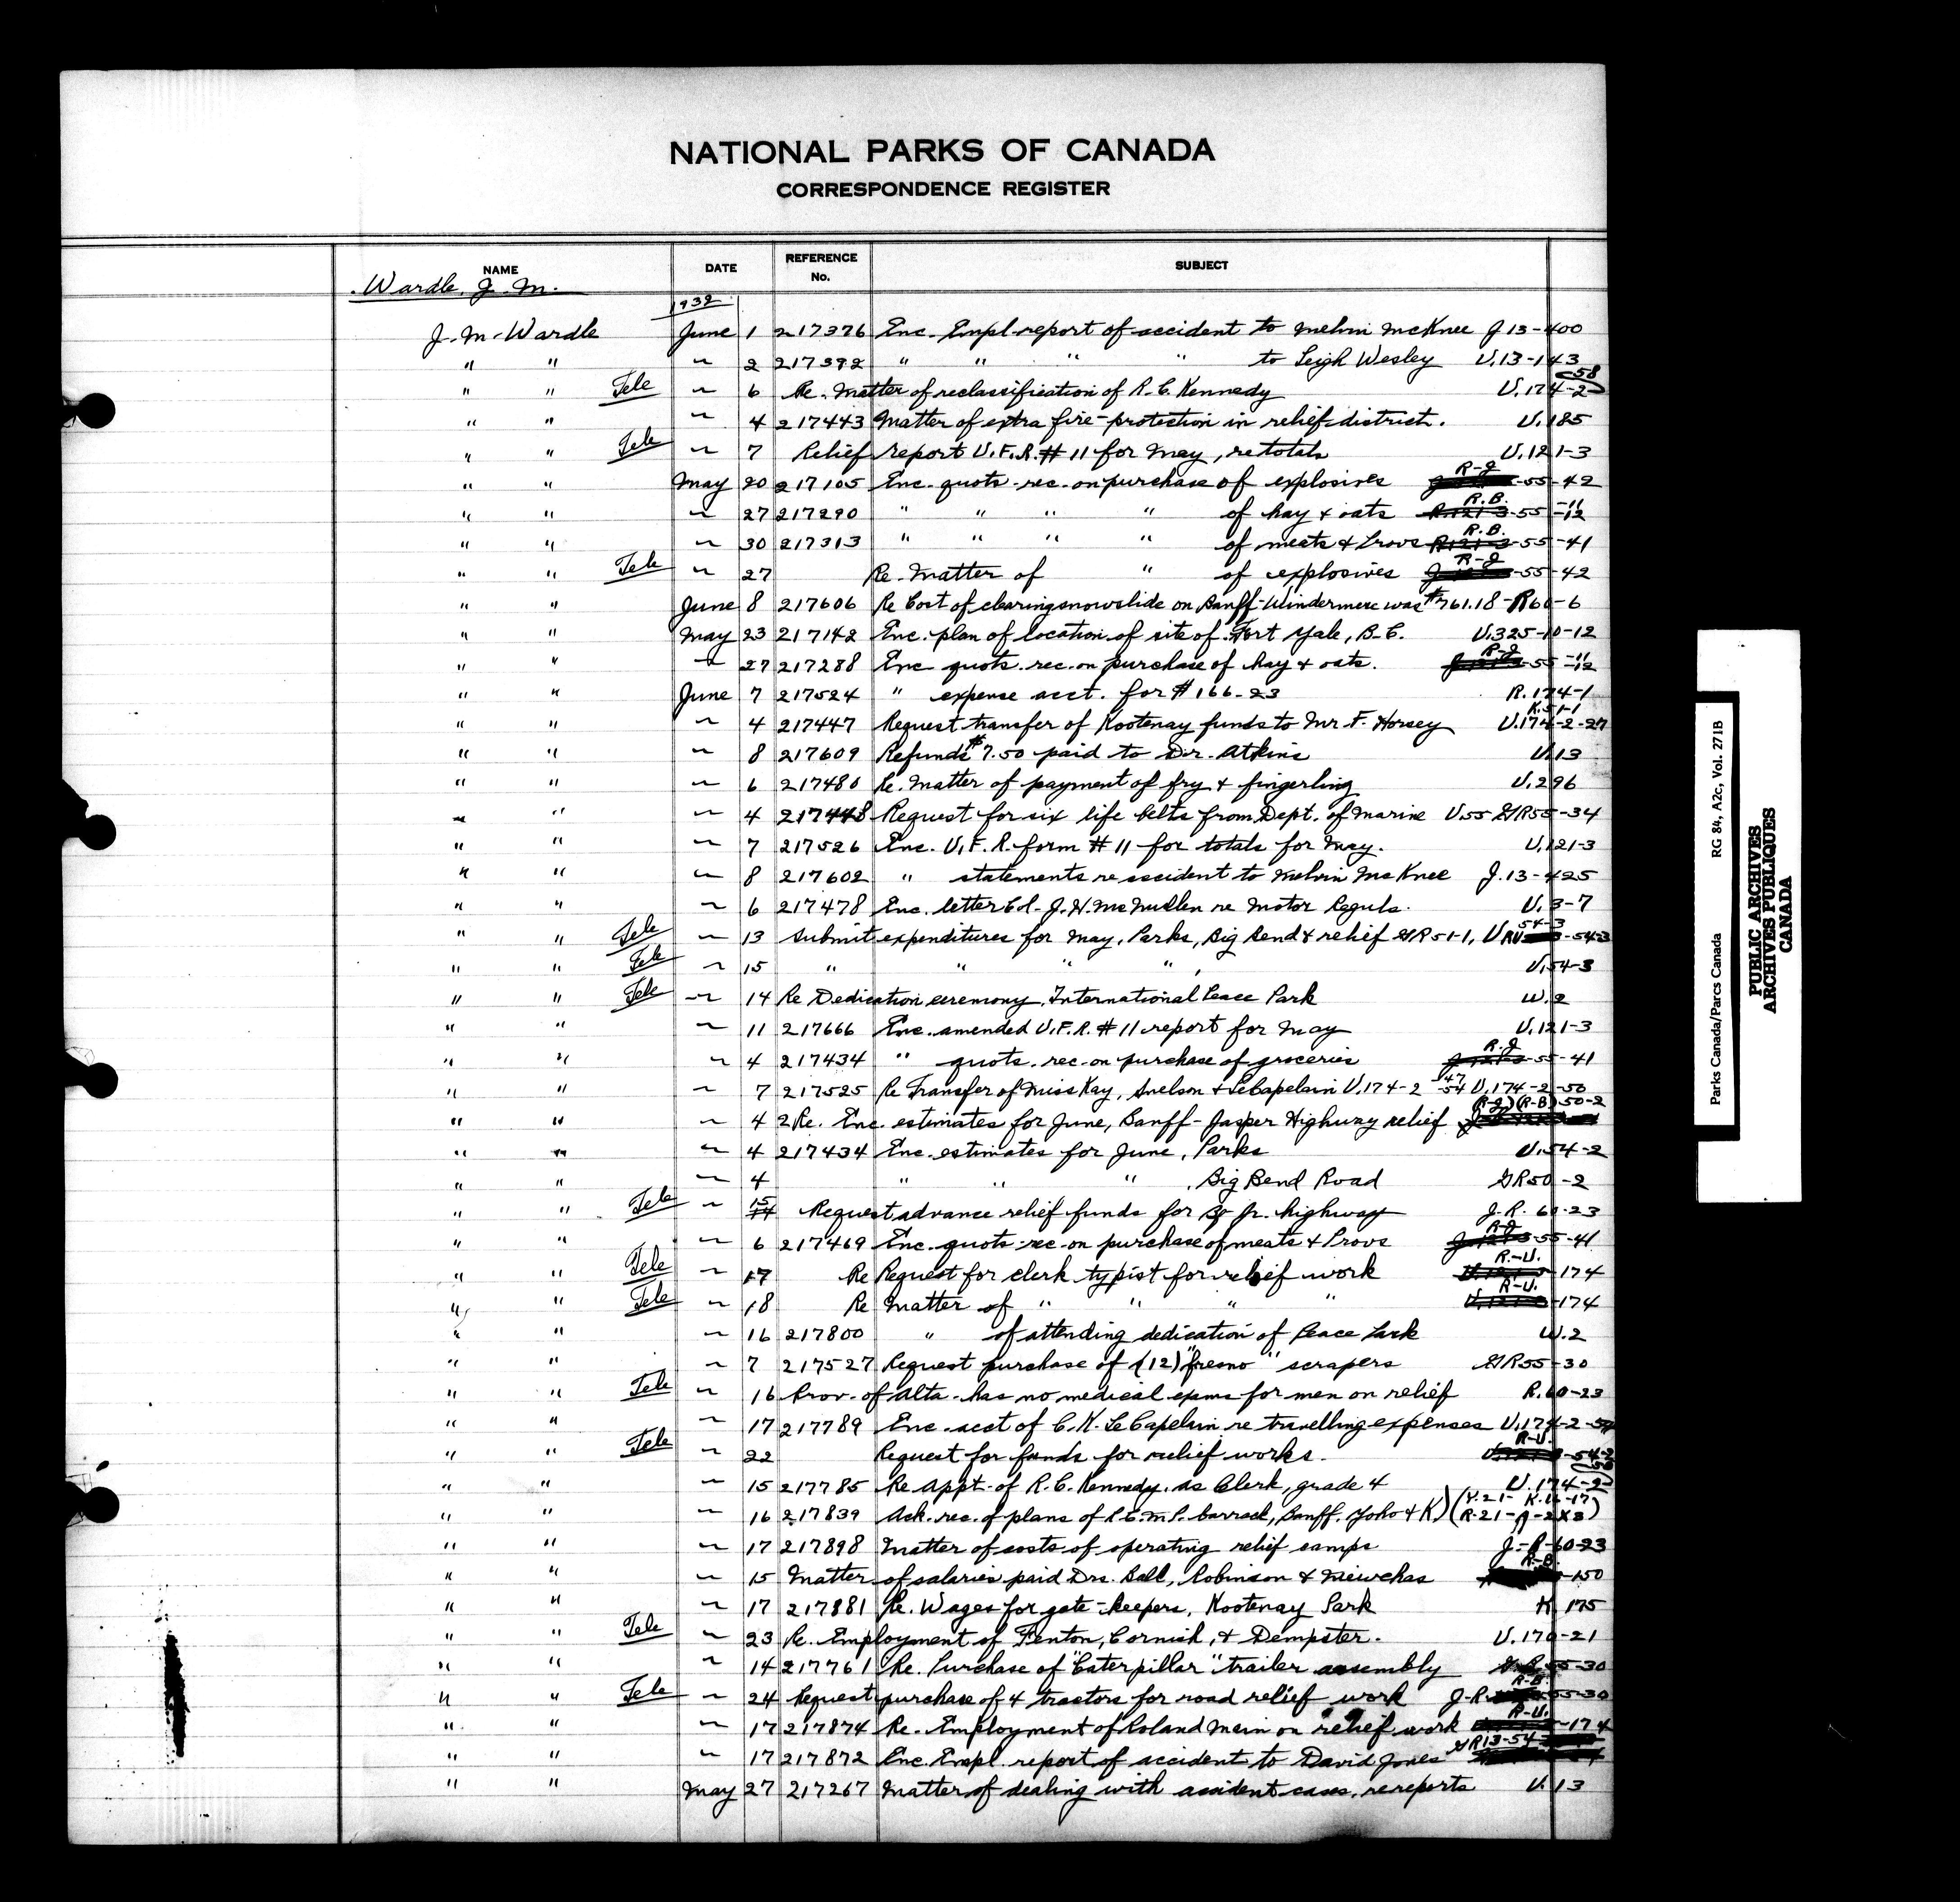 NATIONAL PARKS OF CANADA
CORRESPONDENCE REGISTER
NAME DATE REFERENCE No. SUBJECT
Wardle, J. M.
1932
J. M. Wardle June 1 217376 Enc. Empl. report of accident to Melvin McKnee J 13-400
" " ~ 2 217392 " " " " to Leigh Wesley U.13-143
" " Tele ~ 6 Re. Matter of reclassification of R. C. Kennedy U.174-2-58
" " ~ 4 217443 Matter of extra fire-protection in relief district. U.185
" " Tele ~ 7 Relief report U.F.R. # 11 for May, re totals U.121-3
" " May 20 217105 Enc. quots. rec. on purchase of explosives R-J -55-42
" " ~ 27 217290 " " " " of hay & oats R.B. -55-11-12
" " ~ 30 217313 " " " " of meats & Provs R.B. -55-41
" " Tele ~ 27 Re. Matter of " of explosives R-J -55-42
" " June 8 217606 Re Cost of clearing snowslide on Banff-Windermere was $761.18 - R60-6
" " May 23 217142 Enc. plan of location of site of Fort Yale, B.C. U.325-10-12
" " ~ 27 217288 Enc quots. rec. on purchase of hay & oats. R-J -55-11-12
" " June 7 217524 " expense acct. for $166-23 R.174-1
" " ~ 4 217447 Request transfer of Kootenay funds to Mr F. Horsey K.51-1 U.174-2-27
" " ~ 8 217609 Refunds $7.50 paid to Dr. Atkins U.13
" " ~ 6 217480 Re. Matter of payment of fry & fingerling U.296
" " ~ 4 217448 Request for six life belts from Dept. of Marine U.55 GR55-34
" " ~ 7 217526 Enc. U.F.R. form # 11 for totals for May. U.121-3
" " ~ 8 217602 " statements re accident to Melvin McKnee J.13-425
" " ~ 6 217478 Enc. letter Col. J. H. McMullen re Motor Reguls. U.3-7
" " Tele ~ 13 Submit expenditures for May, Parks, Big Bend & relief GR51-1, U 54-3 RU -54-3
" " Tele ~ 15 " " " " , U.54-3
" " Tele ~ 14 Re Dedication ceremony, International Peace Park W.2
" " ~ 11 217666 Enc. amended U.F.R. # 11 report for May U.121-3
" " ~ 4 217434 " quots. rec. on purchase of groceries R.J -55-41
" " ~ 7 217525 Re Transfer of Miss Kay, Snelson & LeCapelain U.174-2 -47 -54 U.174-2-50
" " ~ 4 2 Re. Enc. estimates for June, Banff-Jasper Highway relief (R-J)(R-B) 50-2
" " ~ 4 217434 Enc. estimates for June, Parks U.54-2
" " ~ 4 " " " , Big Bend Road GR50-2
" " Tele ~ 15 Request advance relief funds for Bf Jr. highway J-R. 60-23
" " ~ 6 217469 Enc. quots. rec. on purchase of meats & Provs R-J -55-41
" " Tele ~ 17 Re Request for clerk typist for relief work R-U. -174
" " Tele ~ 18 Re Matter of " " " " R-U. -174
" " ~ 16 217800 " of attending dedication of Peace Park W.2
" " ~ 7 217527 Request purchase of (12) "fresno" scrapers GR55-30
" " Tele ~ 16 Prov. of Alta. has no medical exms for men on relief R.60-23
" " ~ 17 217789 Enc. acct of C. K. LeCapelain re travelling expenses U.174-2-54
" " Tele ~ 22 Request for funds for relief works. R-U. -54-2
" " ~ 15 217785 Re Appt. of R. C. Kennedy, as Clerk, grade 4 U.174-2-58
" " ~ 16 217839 Ack. rec. of plans of R.C.M.P. barrack, Banff, Yoho & K.)
" " ~ 17 217898 Matter of costs of operating relief camps J-R-60-23
" " ~ 15 Matter of salaries paid Drs. Ball, Robinson & R-B -150
" " ~ 17 217881 Re. Wages for gate-keepers, Kootenay Park K 175
" " Tele ~ 23 Re. Employment of Fenton, Cornish, & Dempster. U.170-21
" " ~ 14 217761 Re. Purchase of "Caterpillar" trailer assembly G.R.55-30
" " Tele ~ 24 Request purchase of 4 tractors for road relief work J-R. R-B. 55-30
" " ~ 17 217874 Re. Employment of Roland Mein on relief work R-U. -174
" " ~ 17 217872 Enc. Empl. report of accident to David Jones GR13-54
" " May 27 217267 Matter of dealing with accident cases, re reports U.13
Parks Canada/Parcs Canada RG 84, A2c, Vol. 271B
PUBLIC ARCHIVES
ARCHIVES PUBLIQUES
CANADA